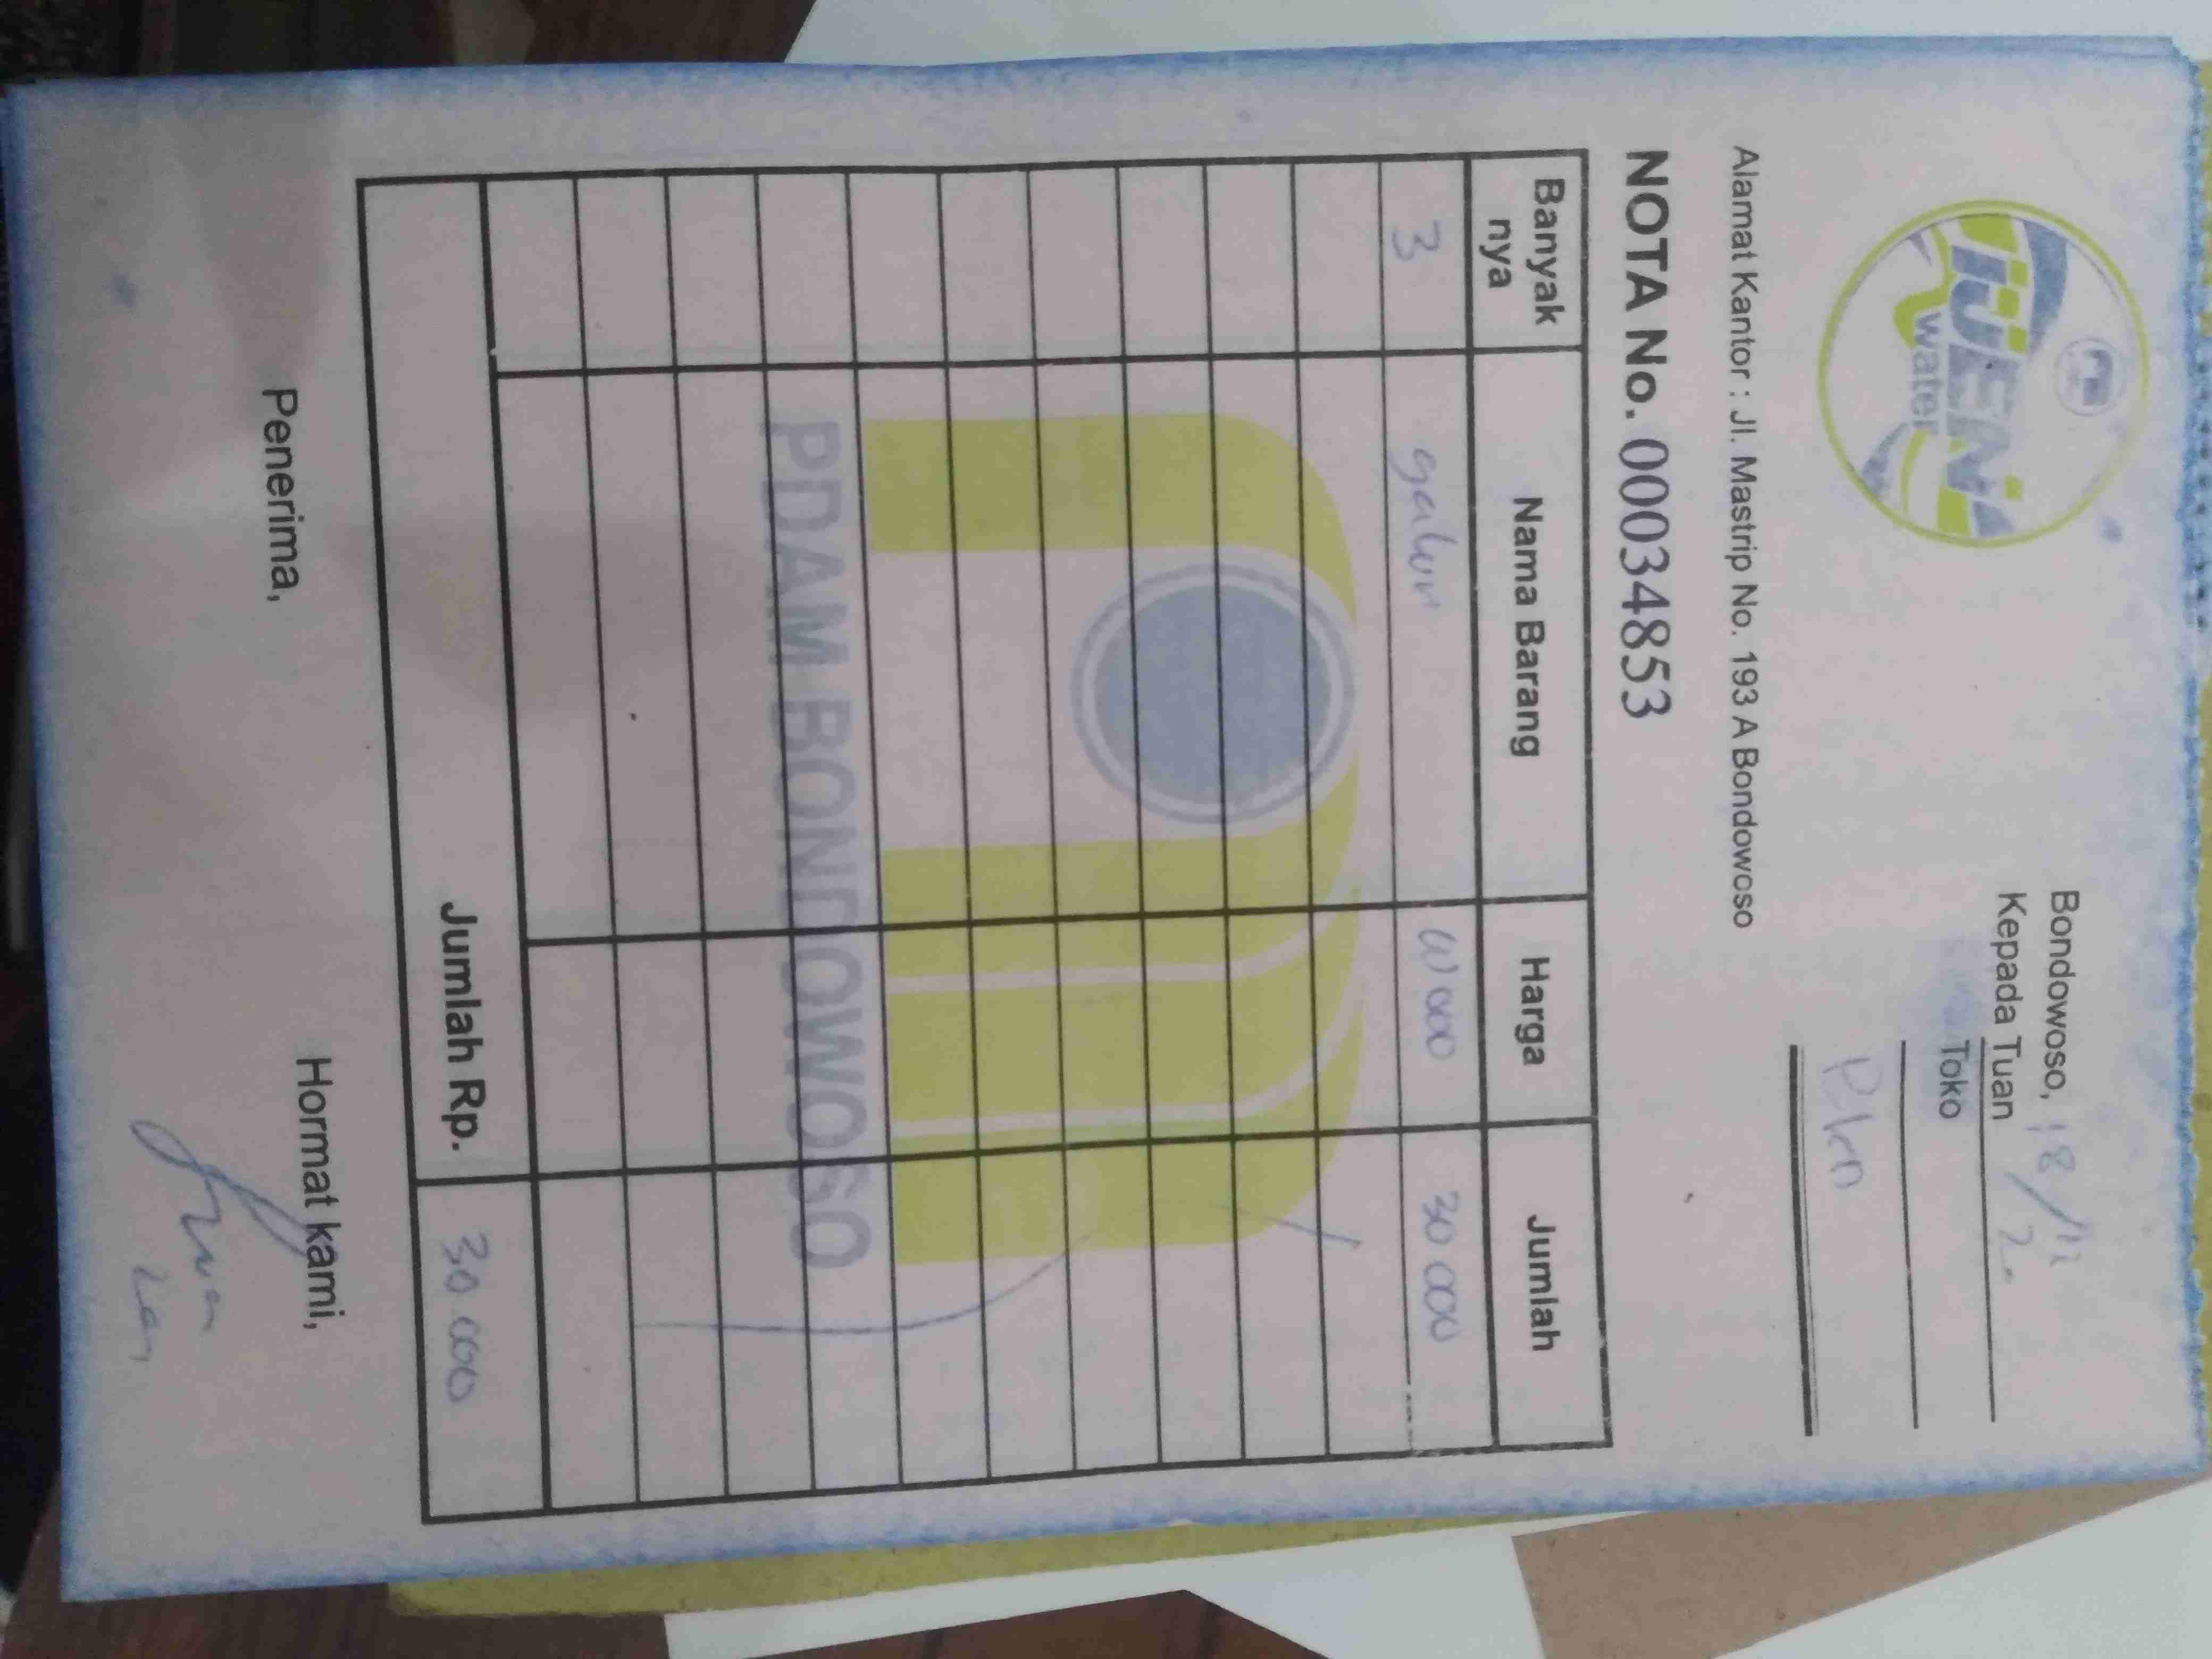 IJEN
water
Bondowoso, 18/
Kepada Tuan
Toko
Alamat Kantor : Jl. Mastrip No. 193 A Bondowoso
NOTA No. 00034853
Banyak nya Nama Barang Harga Jumlah
3 galon 10 000 30 000
PDAM BONDOWOSO
Jumlah Rp. 30 000
Penerima, Hormat kami,